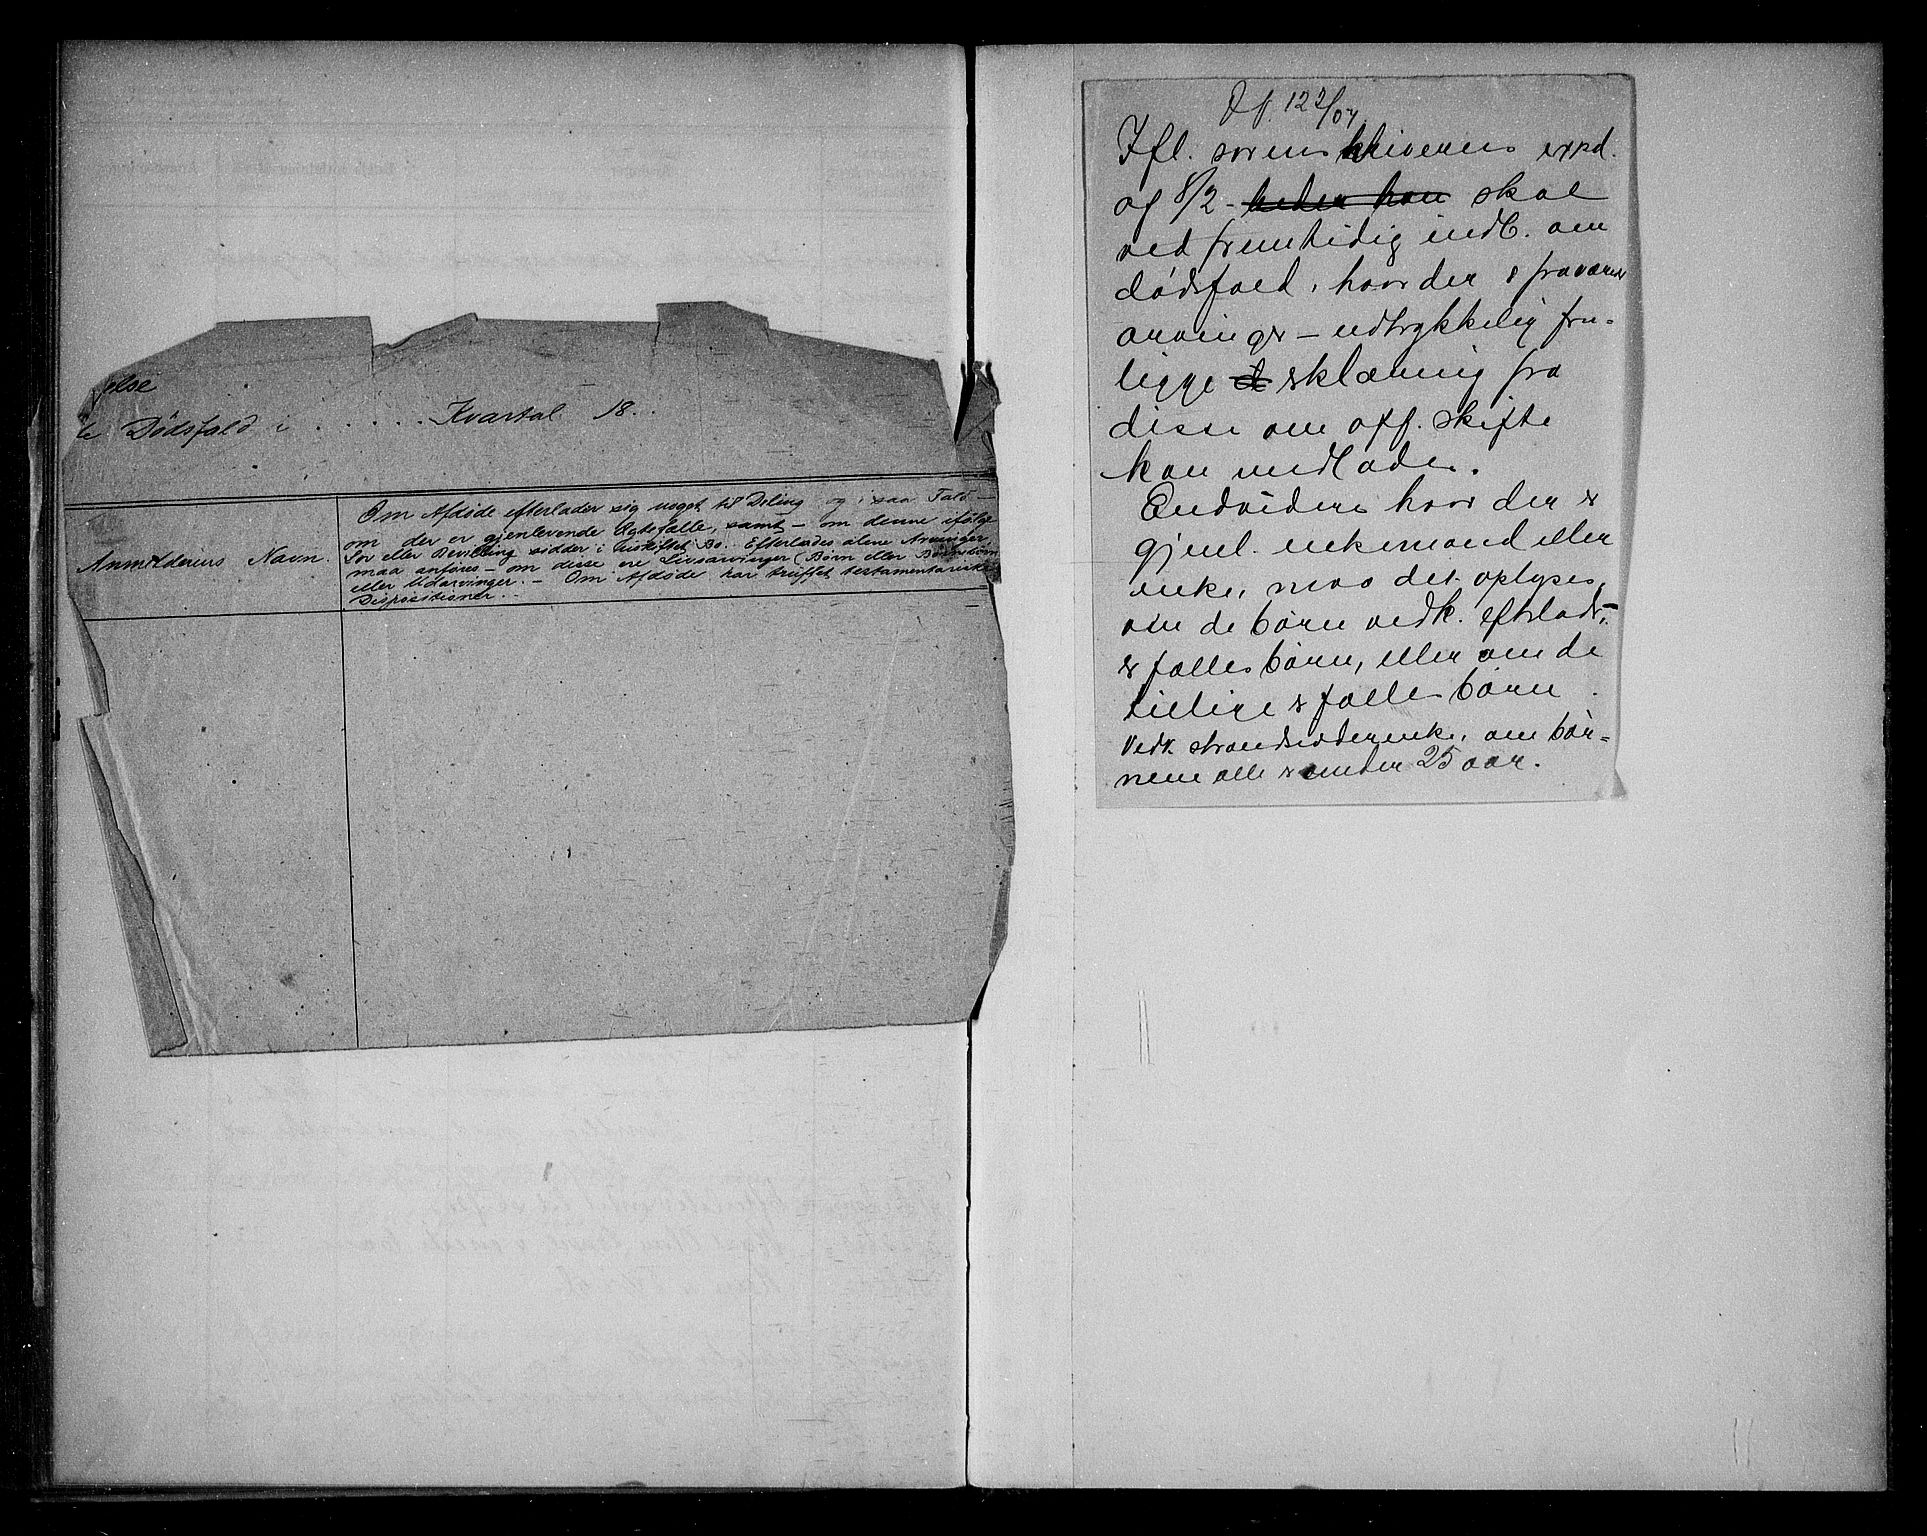 else
te Dødsfald i . . . . . . Kvartal 18 . .
Anmelderens Navn.
Om Afdøde efterlader sig noget til Deling og i saa Fald —
om der er gjenlevende Ægtefælle, samt — om denne ifølge
Lov eller Bevilling sidder i uskiftet Bo. Efterlades alene Arvinger,
maa anføres — om disse ere Livsarvinger (Børn eller Børnebørn
eller Udarvinger. — Om Afdøde har truffet testamentariske
Dispositioner. —
Ifl. sorenskriverens expd.
og 8/2 - beder han skal
ved fremtidig indb. om
dødsfald, hvor der er fraværende
arvinger — udtrykkelig fre-
ligge erklæring fra
disse om off. skifte
kan undlades.
Endvidere hvor der er
gjenl. enkemand eller
enke, maa det oplyses,
om de børn vedk. efterlader,
er fælles børn, eller om de
tillige er fælles børn.
Vedk. strandsidderenke, om bør-
nene alle er under 25 aar.